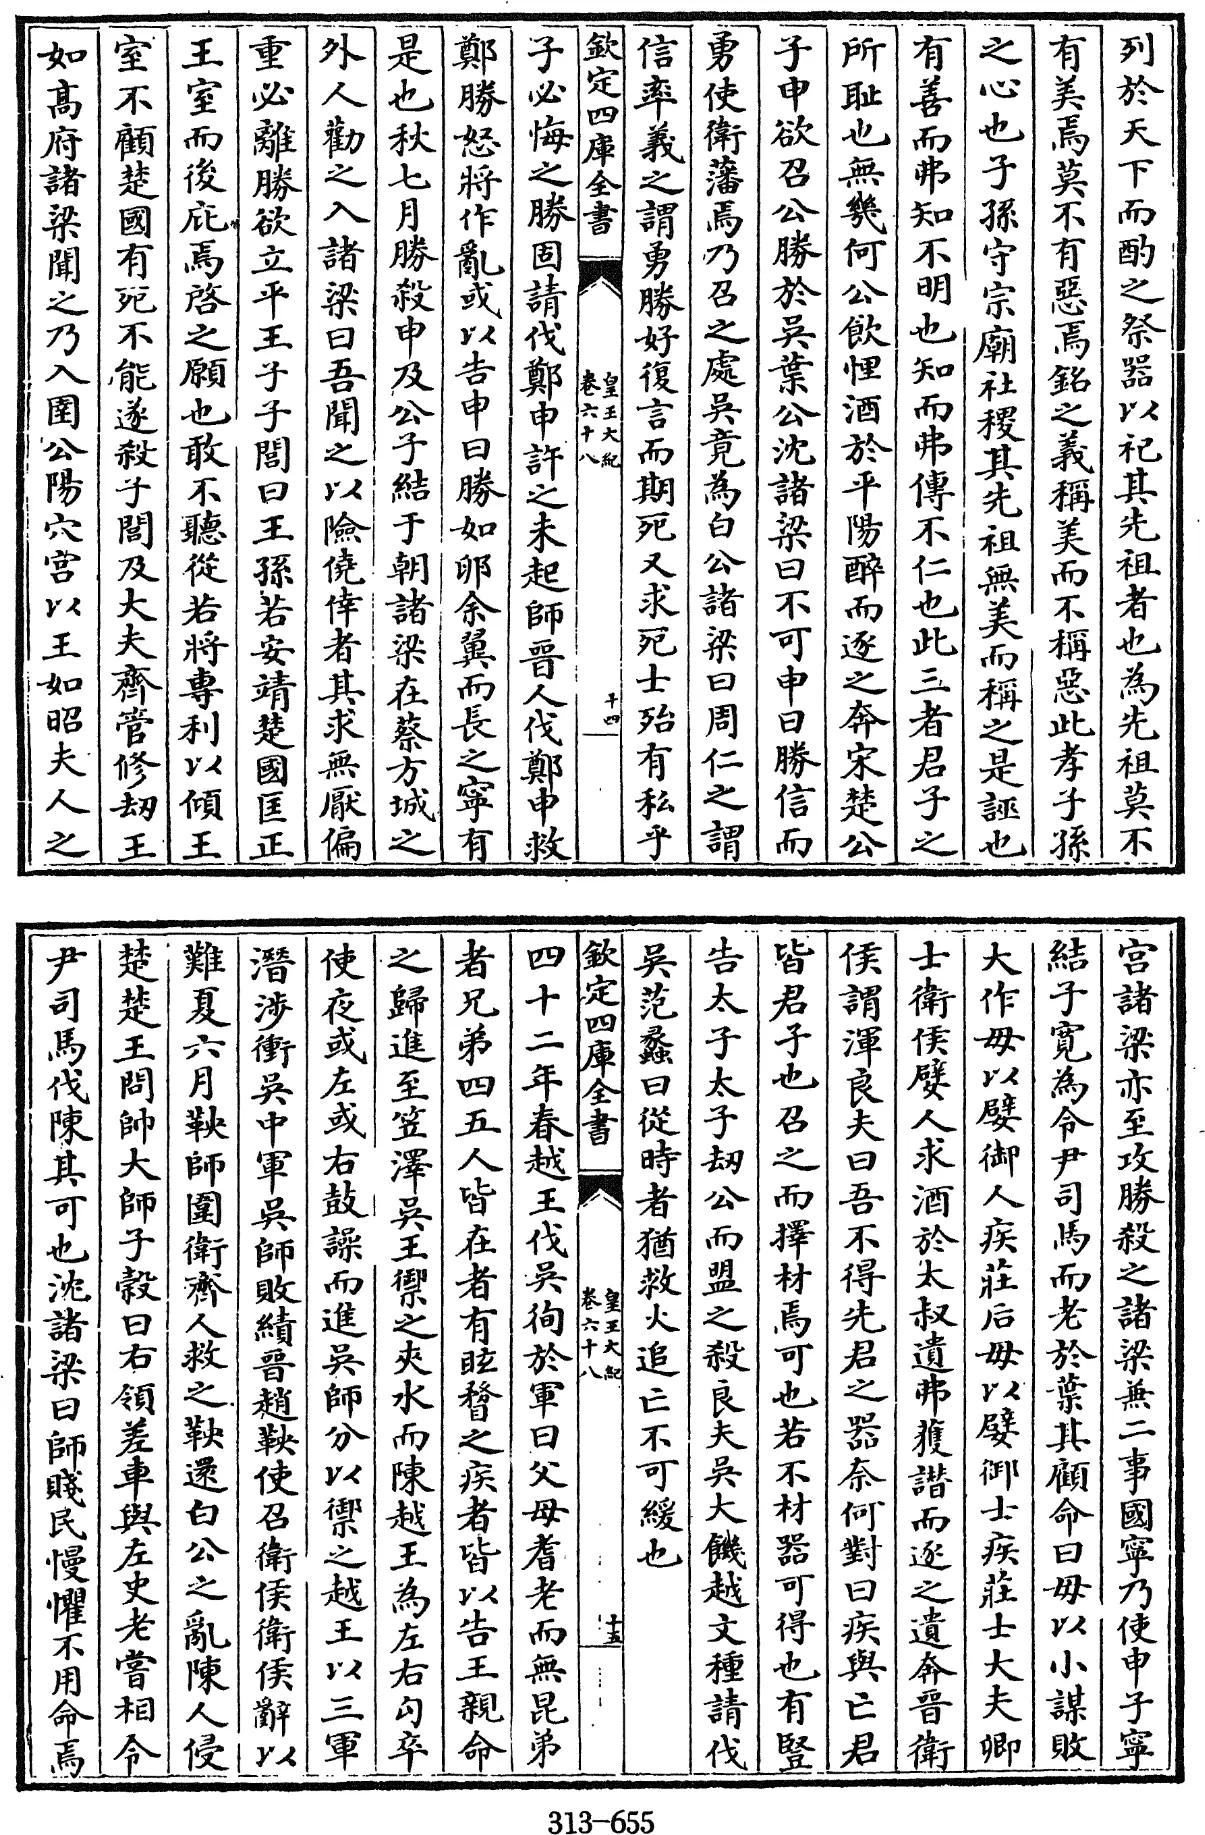 列於天下而酌之祭器以祀其先祖者也為先祖莫不
有美焉莫不有惡焉銘之義稱美而不稱惡此孝子孫
之心也子孫守宗廟社稷其先祖無美而稱之是誣也
有善而弗知不明也知而弗傳不仁也此三者君子之
所耻也無幾何公飲悝酒於平陽醉而逐之奔宋楚公
子申欲召公勝於吳葉公沈諸梁曰不可申曰勝信而
勇使衛藩焉乃召之處吳竟為白公諸梁曰周仁之謂
信率義之謂勇勝好復言而期死又求死士殆有私乎
欽定四庫全書
皇王大紀
卷六十八
十四
子必悔之勝固請伐鄭申許之未起師晉人伐鄭申救
鄭勝怒將作亂或以告申曰勝如卵余翼而長之寧有
是也秋七月勝殺申及公子結于朝諸梁在蔡方城之
外人勸之入諸梁曰吾聞之以險僥倖者其求無厭偏
重必離勝欲立平王子子閭曰王孫若安靖楚國匡正
王室而後庇焉啓之願也敢不聽從若將專利以傾王
室不顧楚國有死不能遂殺子閭及大夫齊管修刼王
如高府諸梁聞之乃入圉公陽穴宫以王如昭夫人之
宫諸梁亦至攻勝殺之諸梁兼二事國寧乃使申子寧
結子寛為令尹司馬而老於葉其顧命曰毋以小謀敗
大作毋以嬖御人疾莊后毋以嬖御士疾莊士大夫卿
士衛侯嬖人求酒於太叔遺弗獲譖而逐之遺奔晉衛
侯謂渾良夫曰吾不得先君之器奈何對曰疾與亡君
皆君子也召之而擇材焉可也若不材器可得也有豎
告太子太子刼公而盟之殺良夫吳大饑越文種請伐
吳范蠡曰從時者猶救火追亡不可緩也
欽定四庫全書
皇王大紀
卷六十八
十五
四十二年春越王伐吳徇於軍曰父母耆老而無昆弟
者兄弟四五人皆在者有眩瞀之疾者皆以告王親命
之歸進至笠澤吳王禦之夾水而陳越王為左右句卒
使夜或左或右鼓譟而進吳師分以禦之越王以三軍
潛涉衝吳中軍吳師敗績晉趙鞅使召衛侯衛侯辭以
難夏六月鞅師圍衛齊人救之鞅還白公之亂陳人侵
楚楚王問帥大師子榖曰右領差車與左史老嘗相令
尹司馬伐陳其可也沈諸梁曰師賤民慢懼不用命焉
313-655